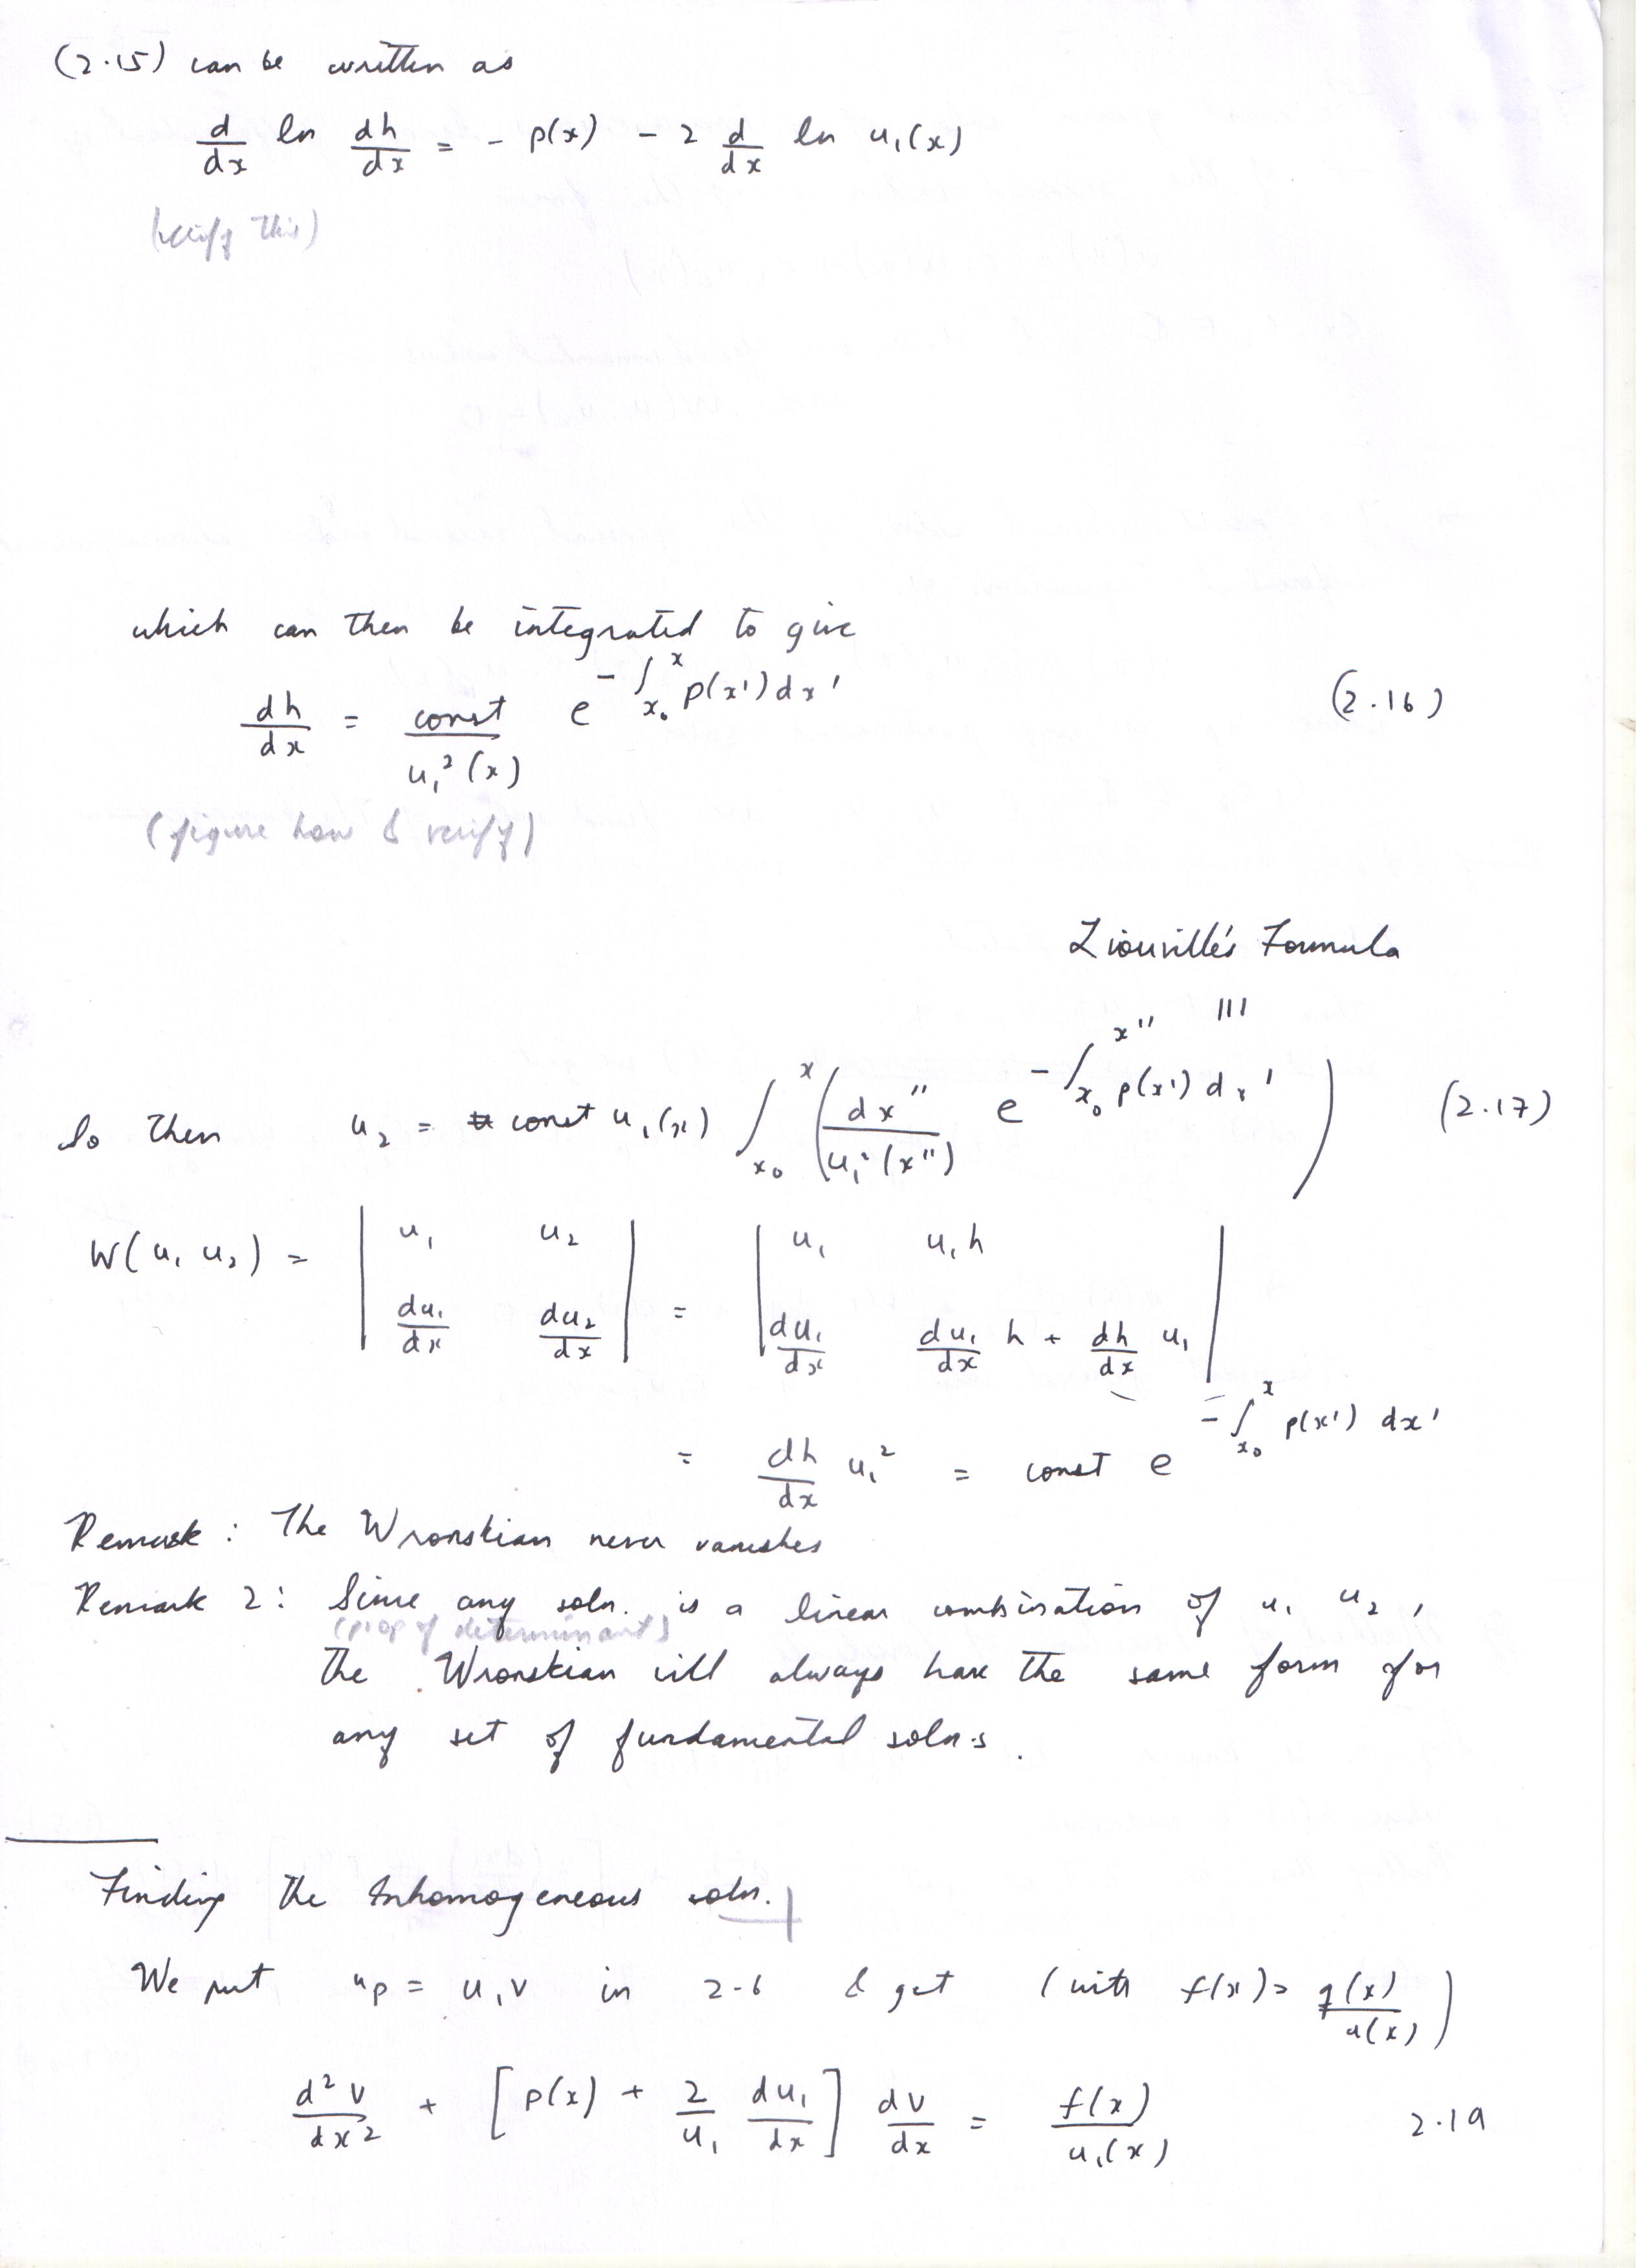 (2.15) can be written as
d/dx ln dh/dx = - p(x) - 2 d/dx ln u₁(x)
(verify this)
which can then be integrated to give
dh/dx = const/u₁²(x) e^(-∫_{x₀}^{x} p(x')dx') (2.16)
(figure how & verify)
Liouville's Formula
|||
So then u₂ = const u₁(x) ∫_{x₀}^{x} (dx''/u₁²(x'') e^(-∫_{x₀}^{x''} p(x')dx')) (2.17)
W(u₁ u₂) = | u₁ u₂ ; du₁/dx du₂/dx | = | u₁ u₁h ; du₁/dx du₁/dx h + dh/dx u₁ |
= dh/dx u₁² = const e^(-∫_{x₀}^{x} p(x') dx')
Remark : The Wronskian never vanishes
Remark 2 : Since any soln. is a linear combination of u₁ u₂ ,
(prop of determinants)
the Wronskian will always have the same form for
any set of fundamental soln.s .
Finding the Inhomogeneous soln.
We put u_p = u₁v in 2.6 & get (with f(x) = q(x)/a(x))
d²v/dx² + [p(x) + 2/u₁ du₁/dx] dv/dx = f(x)/u₁(x) 2.19